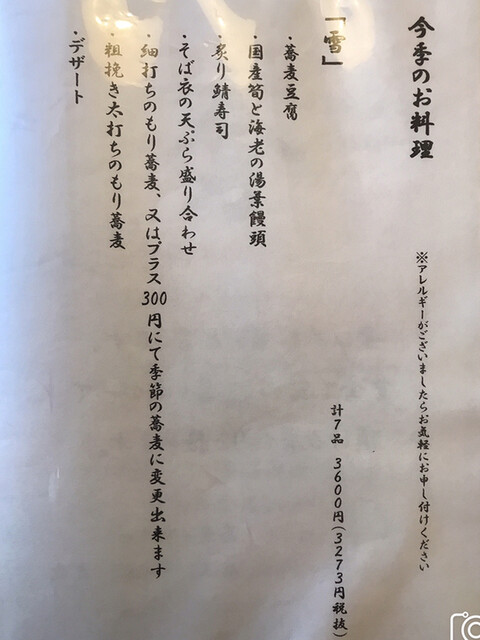 今季のお料理
※アレルギーがございましたらお気軽にお申し付けください
「雪」
計7品 3600円(3273円税抜)
・蕎麦豆腐
・国産筍と海老の湯葉饅頭
・炙り鯖寿司
・そば衣の天ぷら盛り合わせ
・細打ちのもり蕎麦、又はプラス300円にて季節の蕎麦に変更出来ます
・粗挽き太打ちのもり蕎麦
・デザート